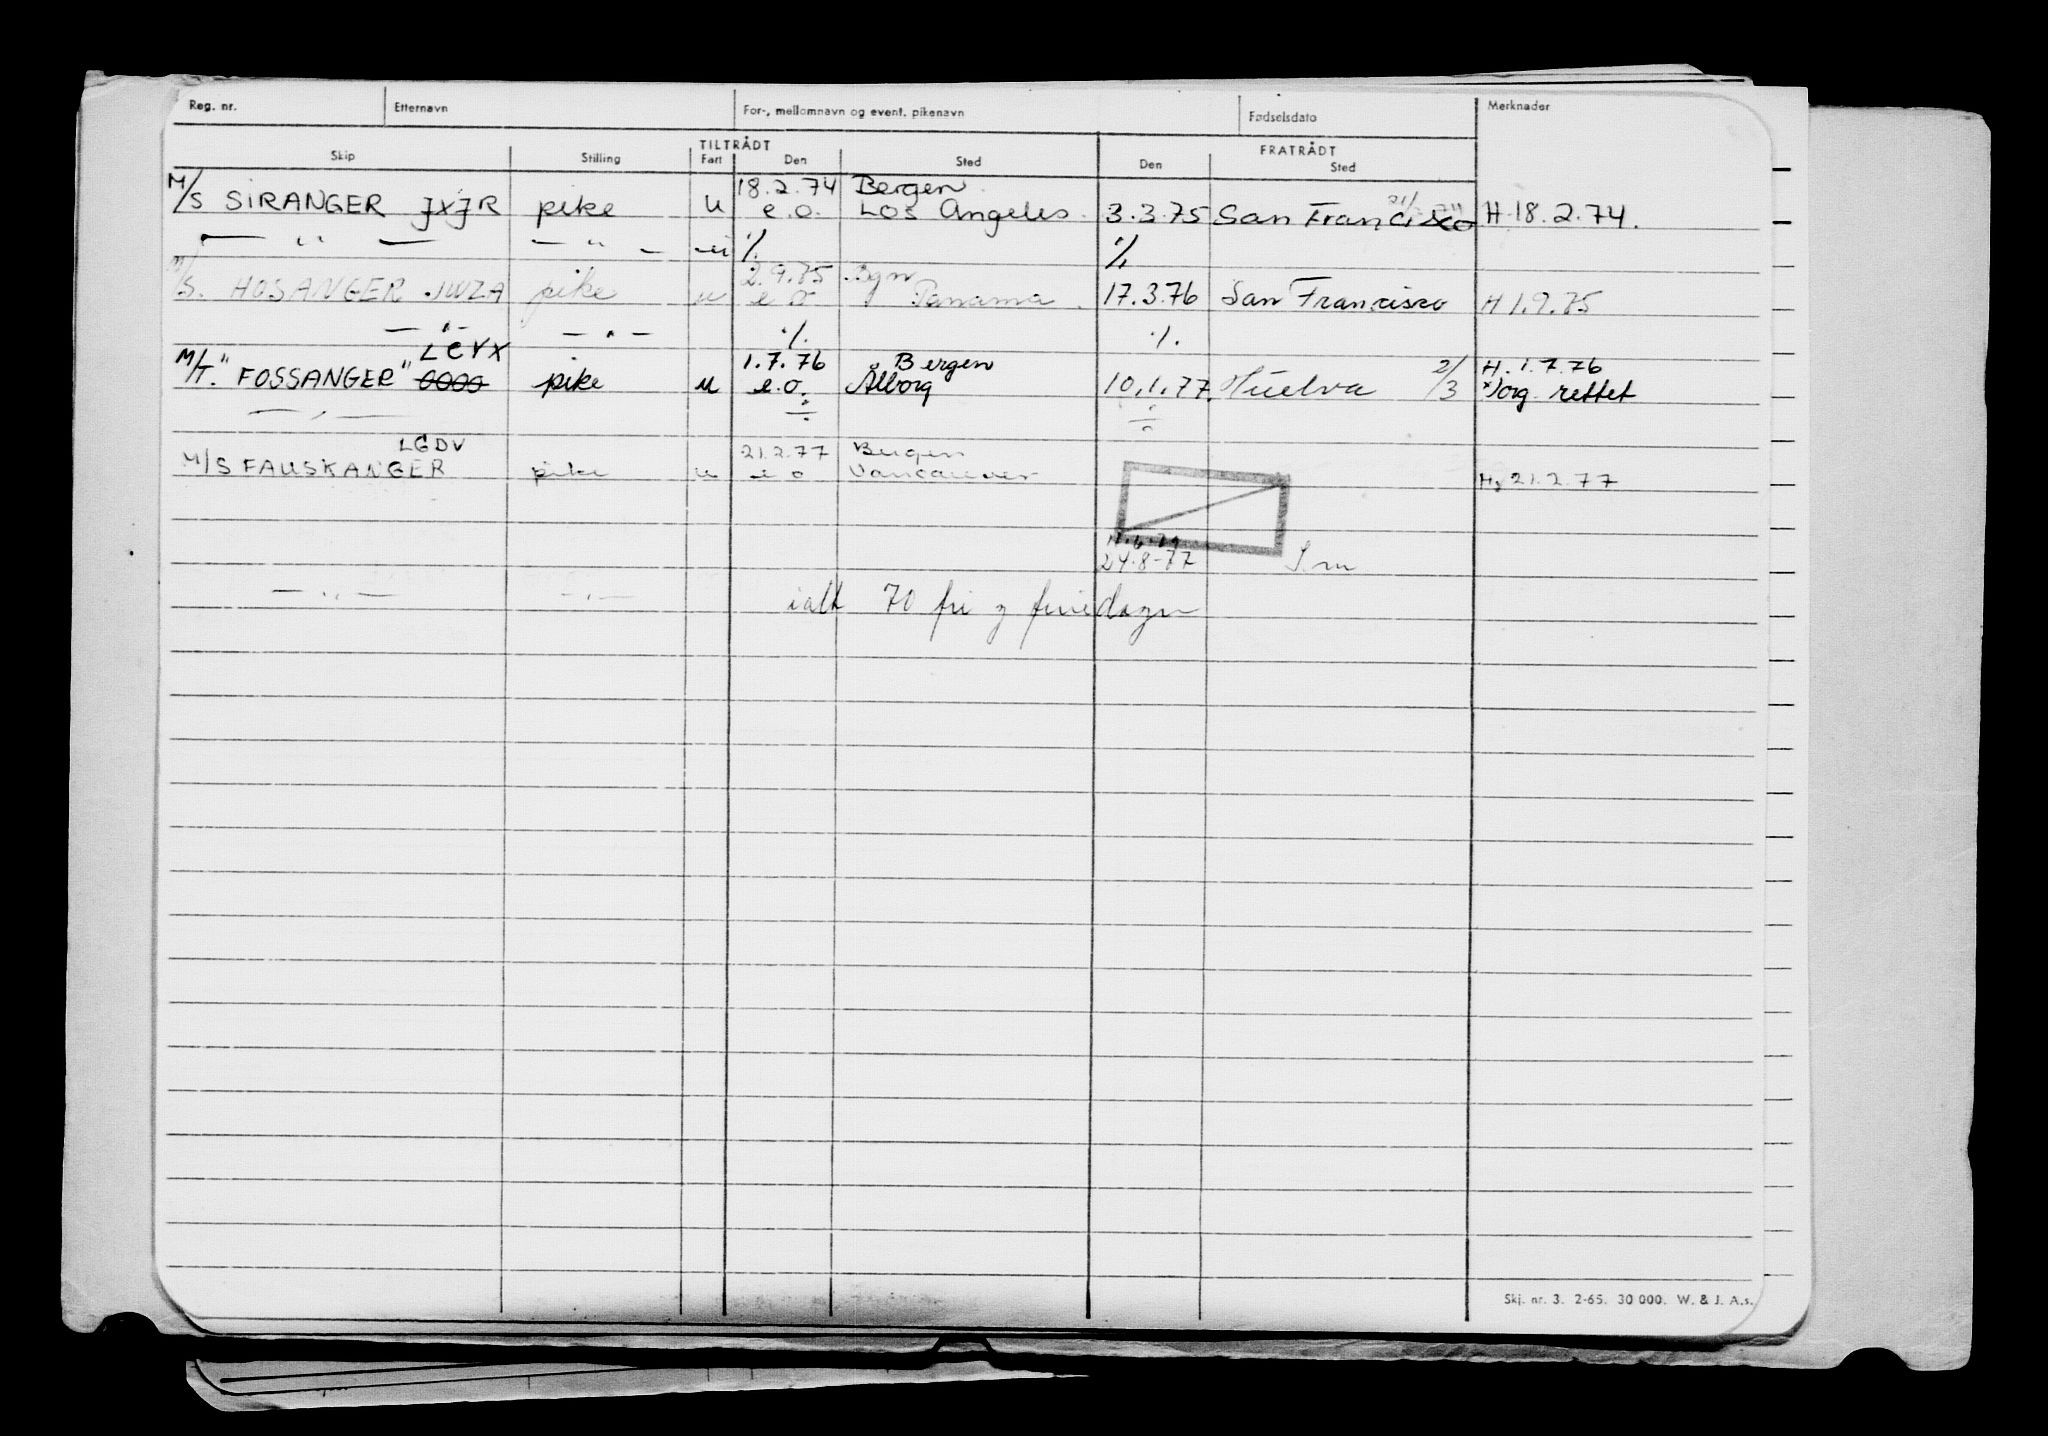 Reg. nr. Etternavn For-, mellomnavn og event. pikenavn Fødselsdato Merknader
TILTRÅDT FRATRÅDT
Skip Stilling Fart Den Sted Den Sted
18.2.74 Bergen
M/S SIRANGER JXJR pike u e.o. Los Angeles 3.3.75 San Francisco H 18.2.74.
— " — — " — u % %
2.9.75 Bgn
M/S. HOSANGER JWZA pike u e o Panama 17.3.76 San Francisco H 1.9.75
— " — — " — % %
LCVX 1.7.76 Bergen 2/3 H. 1.7.76
M/T. "FOSSANGER" pike u e.o. Ålborg 10.1.77. Huelva rettet
— " — ÷ ÷
LGDV 21.2.77 Bergen
M/S FAUSKANGER pike u e o Vancouver H 21.2.77
24.8-77 S.m
— " — — " — ialt 70 fri
Skj. nr. 3. 2-65. 30 000. W. & J. A.s.